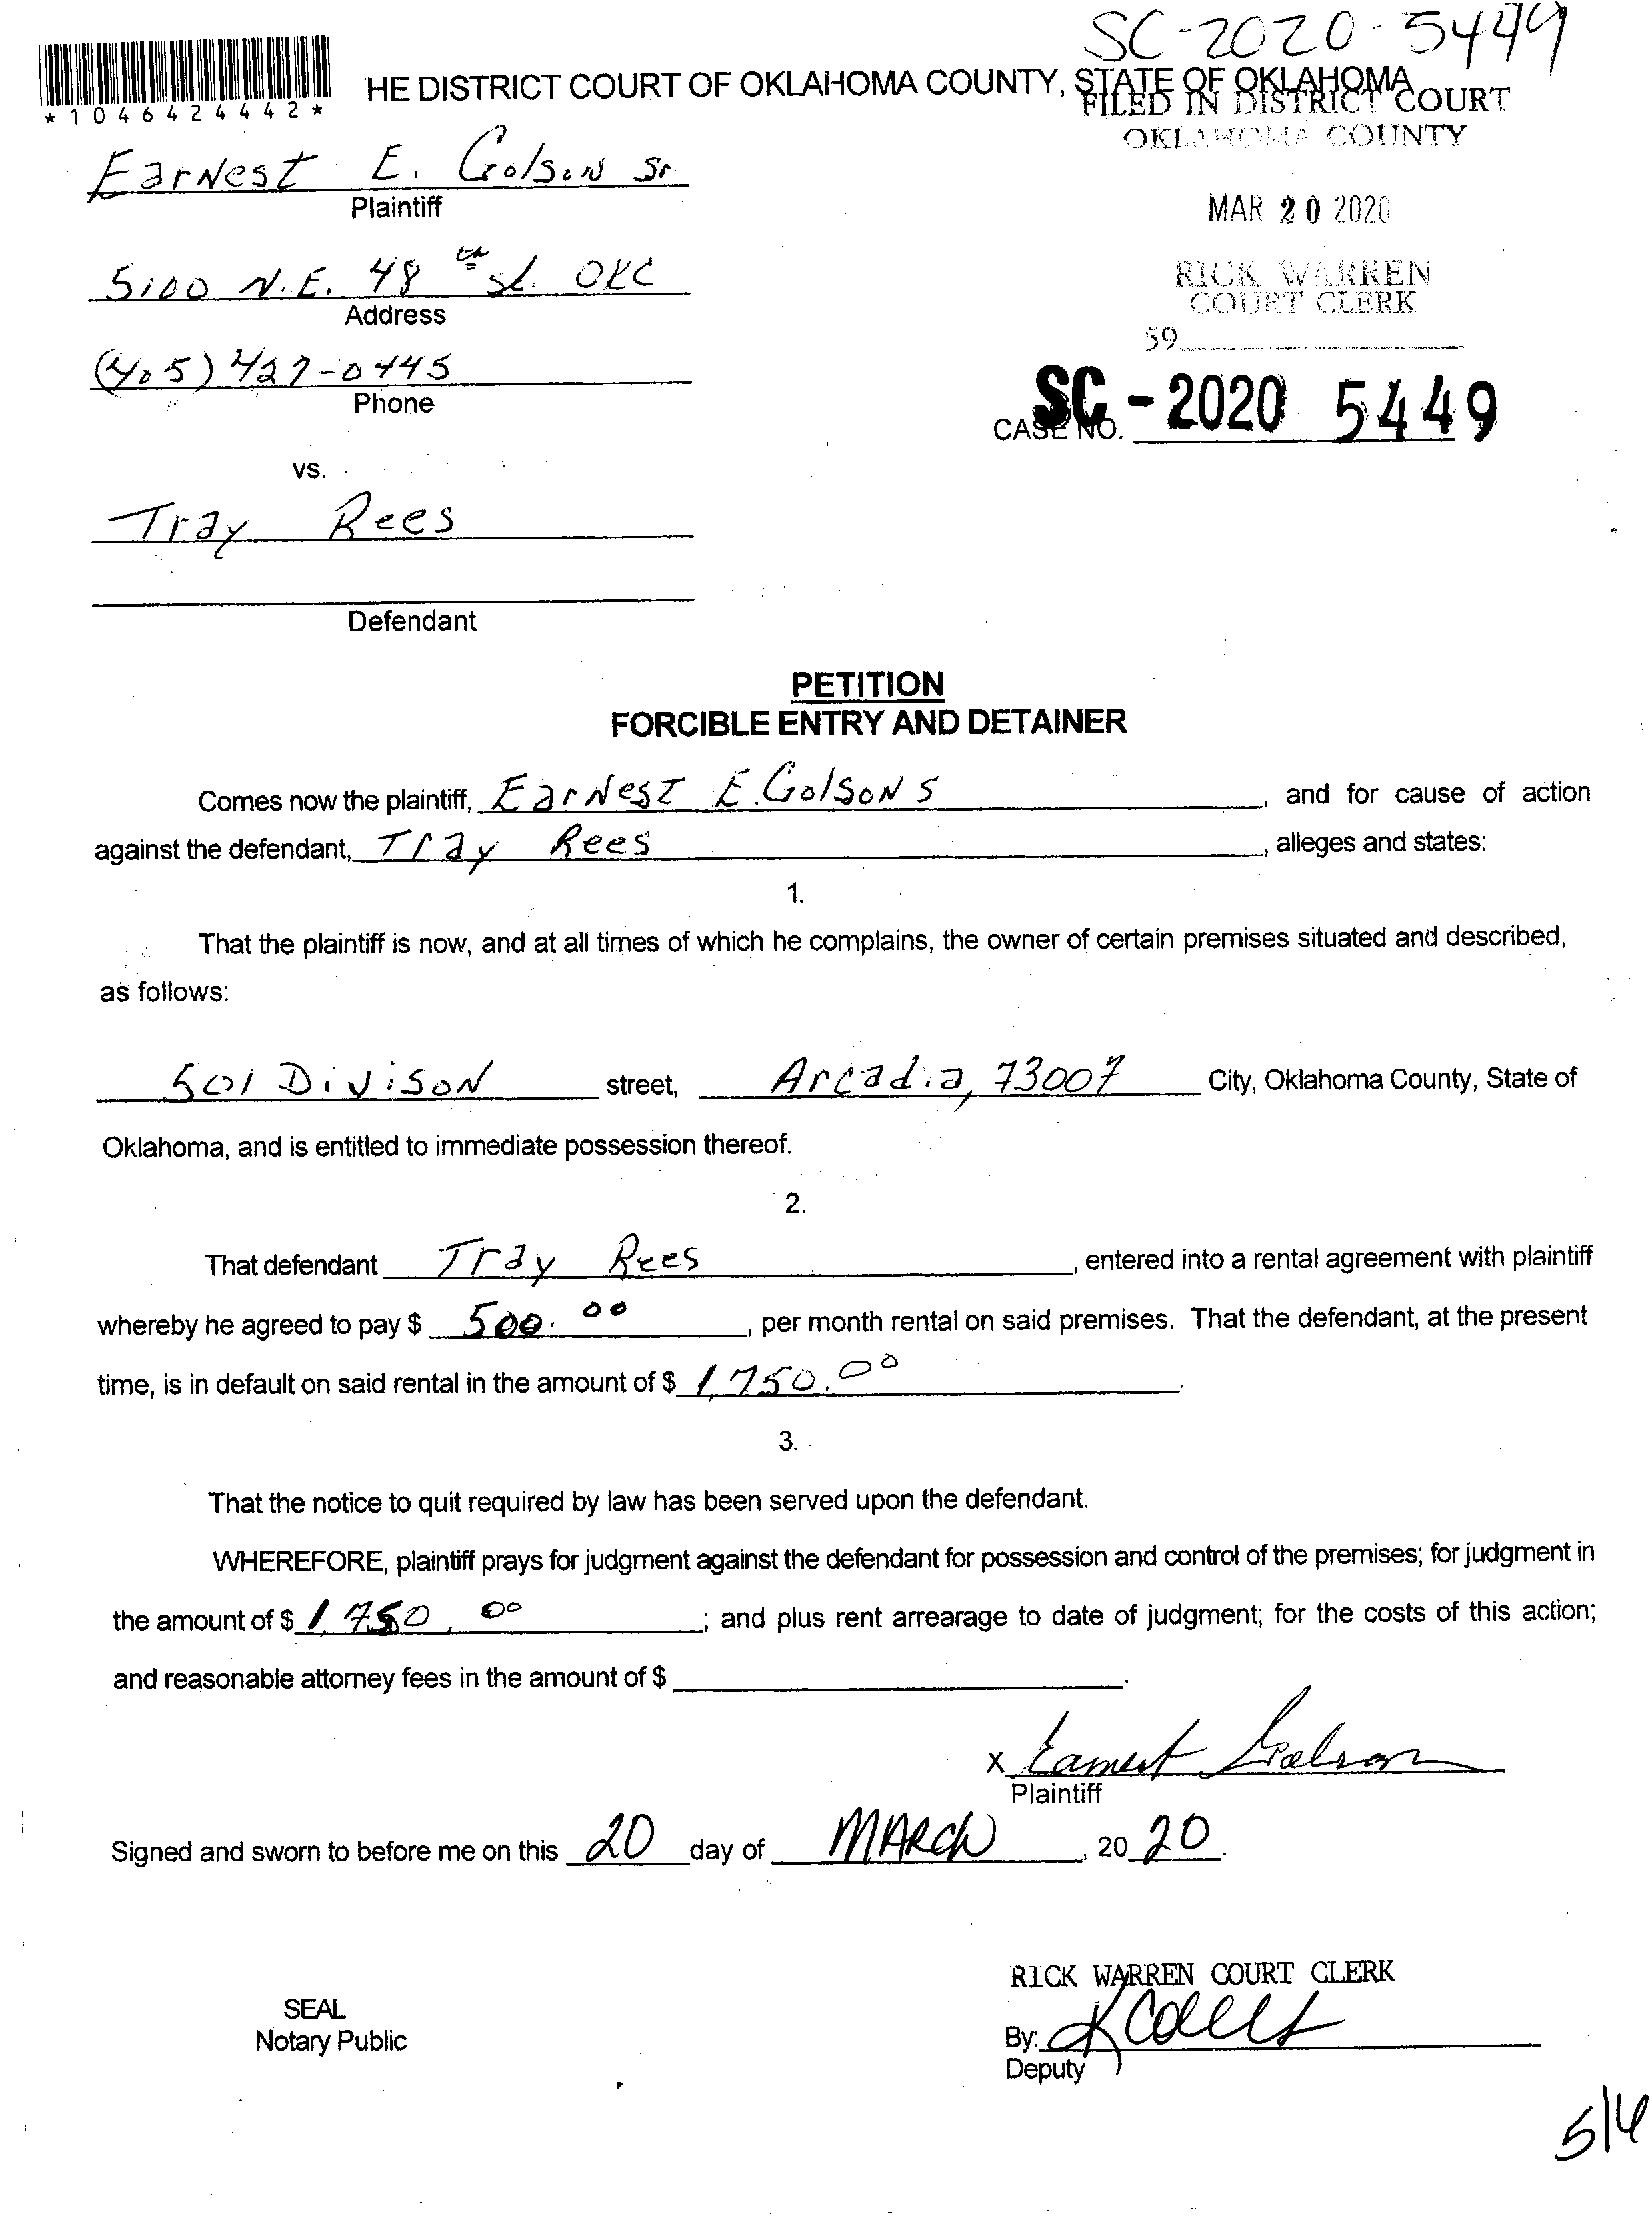 SC-2020-5449
HE DISTRICT COURT OF OKLAHOMA COUNTY, STATE OF OKLAHOMA
*1046424442*
FILED IN DISTRICT COURT
OKLAHOMA COUNTY
Earnest E. Golson Sr
Plaintiff
MAR 20 2020
5100 N.E. 48th st. OKC
Address
RICK WARREN
COURT CLERK
59
(405) 427-0445
Phone
CASE NO. SC - 2020 5449
vs.
Tray Rees
Defendant
PETITION
FORCIBLE ENTRY AND DETAINER
Comes now the plaintiff, Earnest E. Golson S, and for cause of action
against the defendant, Tray Rees, alleges and states:
1.
That the plaintiff is now, and at all times of which he complains, the owner of certain premises situated and described,
as follows:
501 Divison street, Arcadia, 73007 City, Oklahoma County, State of
Oklahoma, and is entitled to immediate possession thereof.
2.
That defendant Tray Rees, entered into a rental agreement with plaintiff
whereby he agreed to pay $ 500.00, per month rental on said premises. That the defendant, at the present
time, is in default on said rental in the amount of $ 1,750.00.
3.
That the notice to quit required by law has been served upon the defendant.
WHEREFORE, plaintiff prays for judgment against the defendant for possession and control of the premises; for judgment in
the amount of $ 1,750.00; and plus rent arrearage to date of judgment; for the costs of this action;
and reasonable attorney fees in the amount of $ .
X Earnest Golson
Plaintiff
Signed and sworn to before me on this 20 day of MARCH, 2020.
RICK WARREN COURT CLERK
SEAL
Notary Public
By:
Deputy